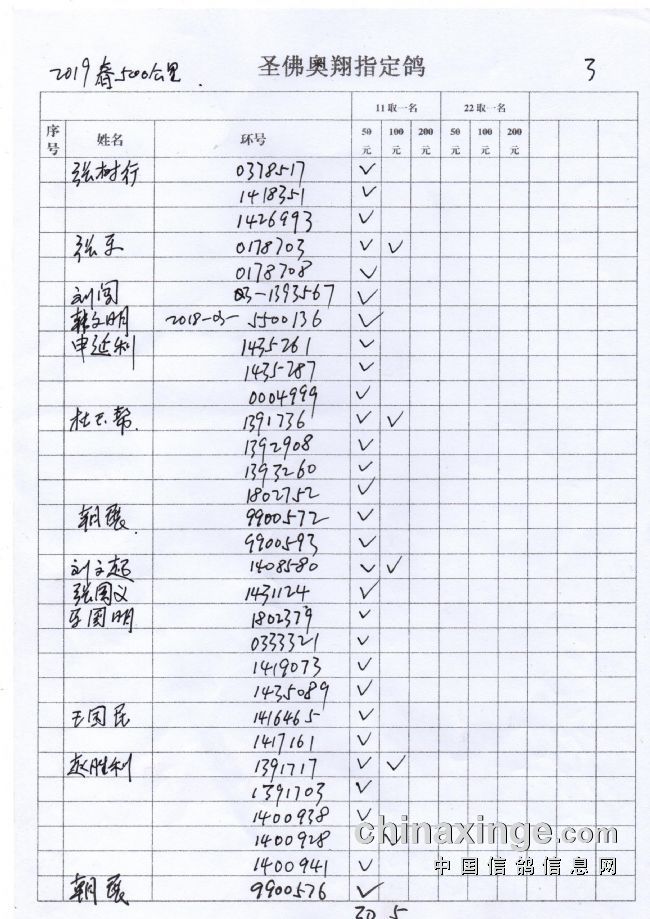 2019春500公里 圣佛奥翔指定鸽 3
11取一名 22取一名
序号 姓名 环号 50元 100元 200元 50元 100元 200元
张树行 0378517 ✓
1418351 ✓
1426993 ✓
张乐 0178703 ✓ ✓
0178708 ✓
刘闯 03-1393567 ✓
韩文明 2018-03- 5500136 ✓
申延利 1435261 ✓
1435287 ✓
0004999 ✓
杜 帮 1391736 ✓ ✓
1392908 ✓
1393260 ✓
1802752 ✓
9900572 ✓
9900593 ✓
刘文起 1408580 ✓ ✓
张国义 1431124 ✓
国明 1802379 ✓
0333321 ✓
1419073 ✓
1435089 ✓
王国民 1416465 ✓
1417161 ✓
赵胜利 1391717 ✓ ✓
1391703 ✓
1400938 ✓
1400928 ✓ ✓
1400941 ✓
9900576 ✓
30 5
chinaxinge.com
中国信鸽信息网